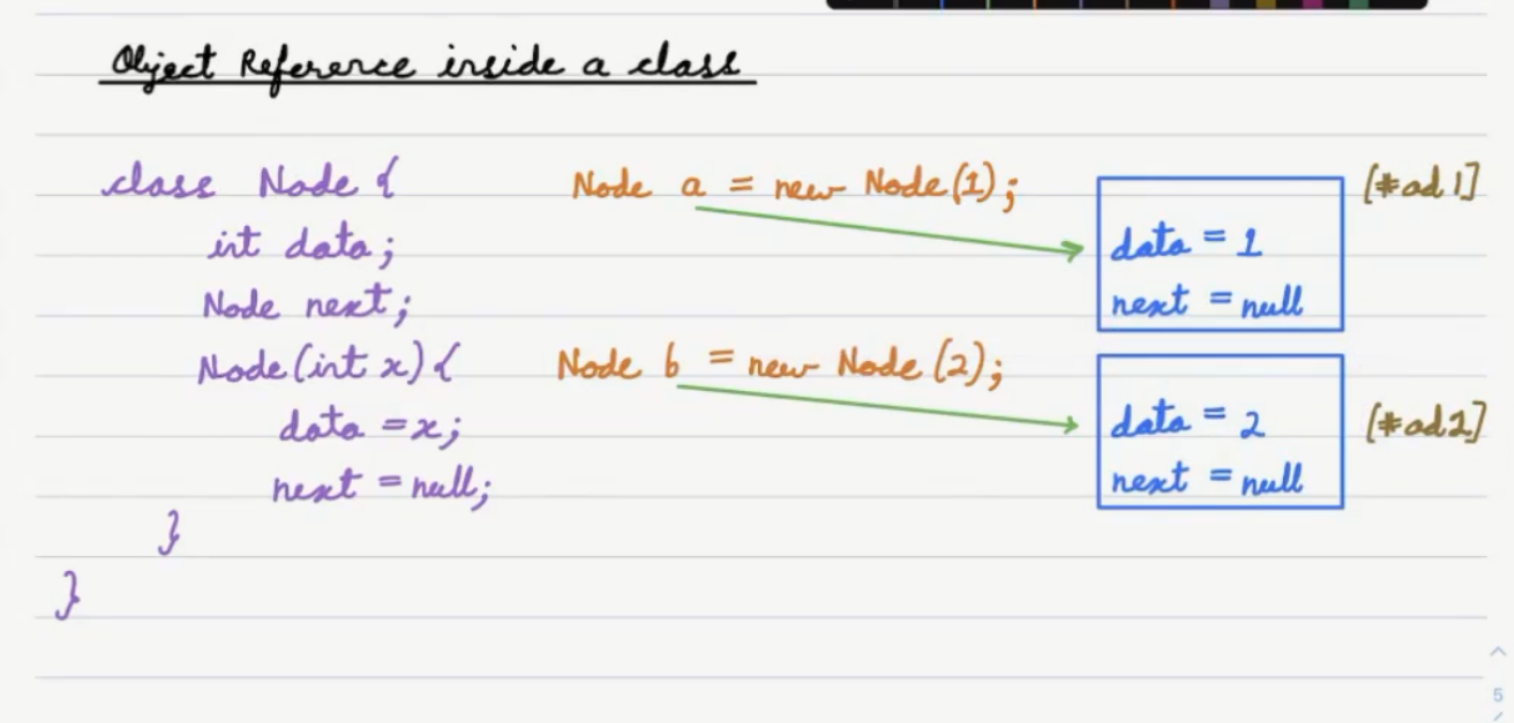 Object Reference inside a class
class Node {
int data;
Node next;
Node (int x) {
data = x;
next = null;
}
}
Node a = new Node(1);
Node b = new Node (2);
data = 1
next = null
[#ad1]
data = 2
next = null
[#ad2]
5